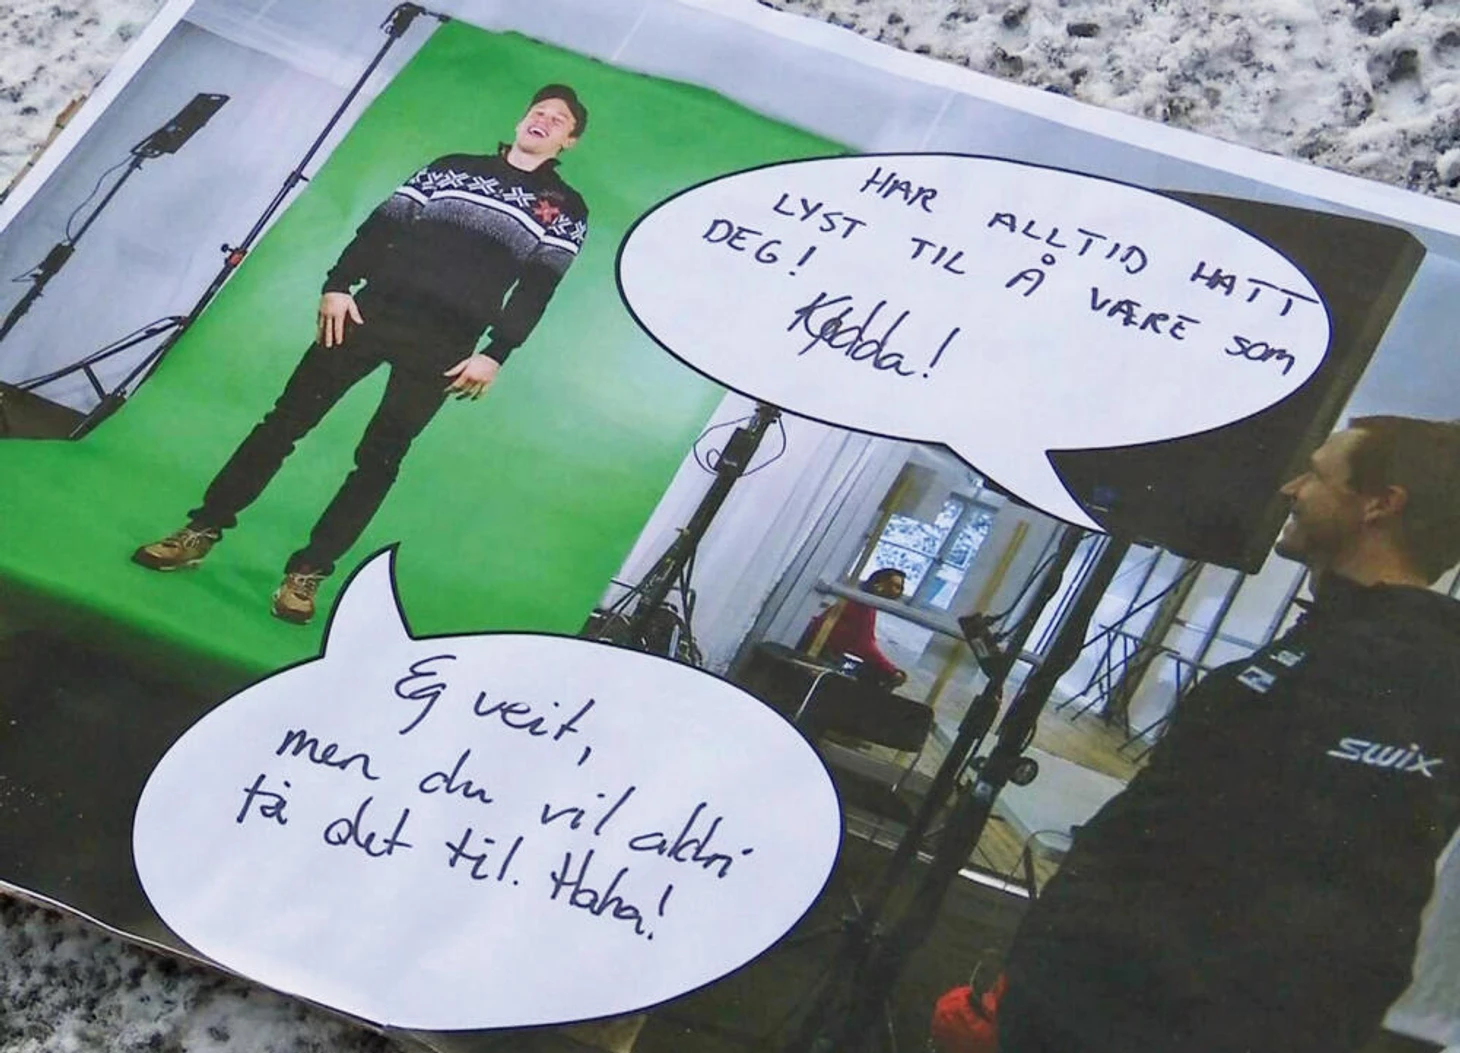 HAR ALLTID HATT
LYST TIL Å VÆRE som
DEG!
Kødda!
Eg veit,
men du vil aldri
få det til. Haha!
swix